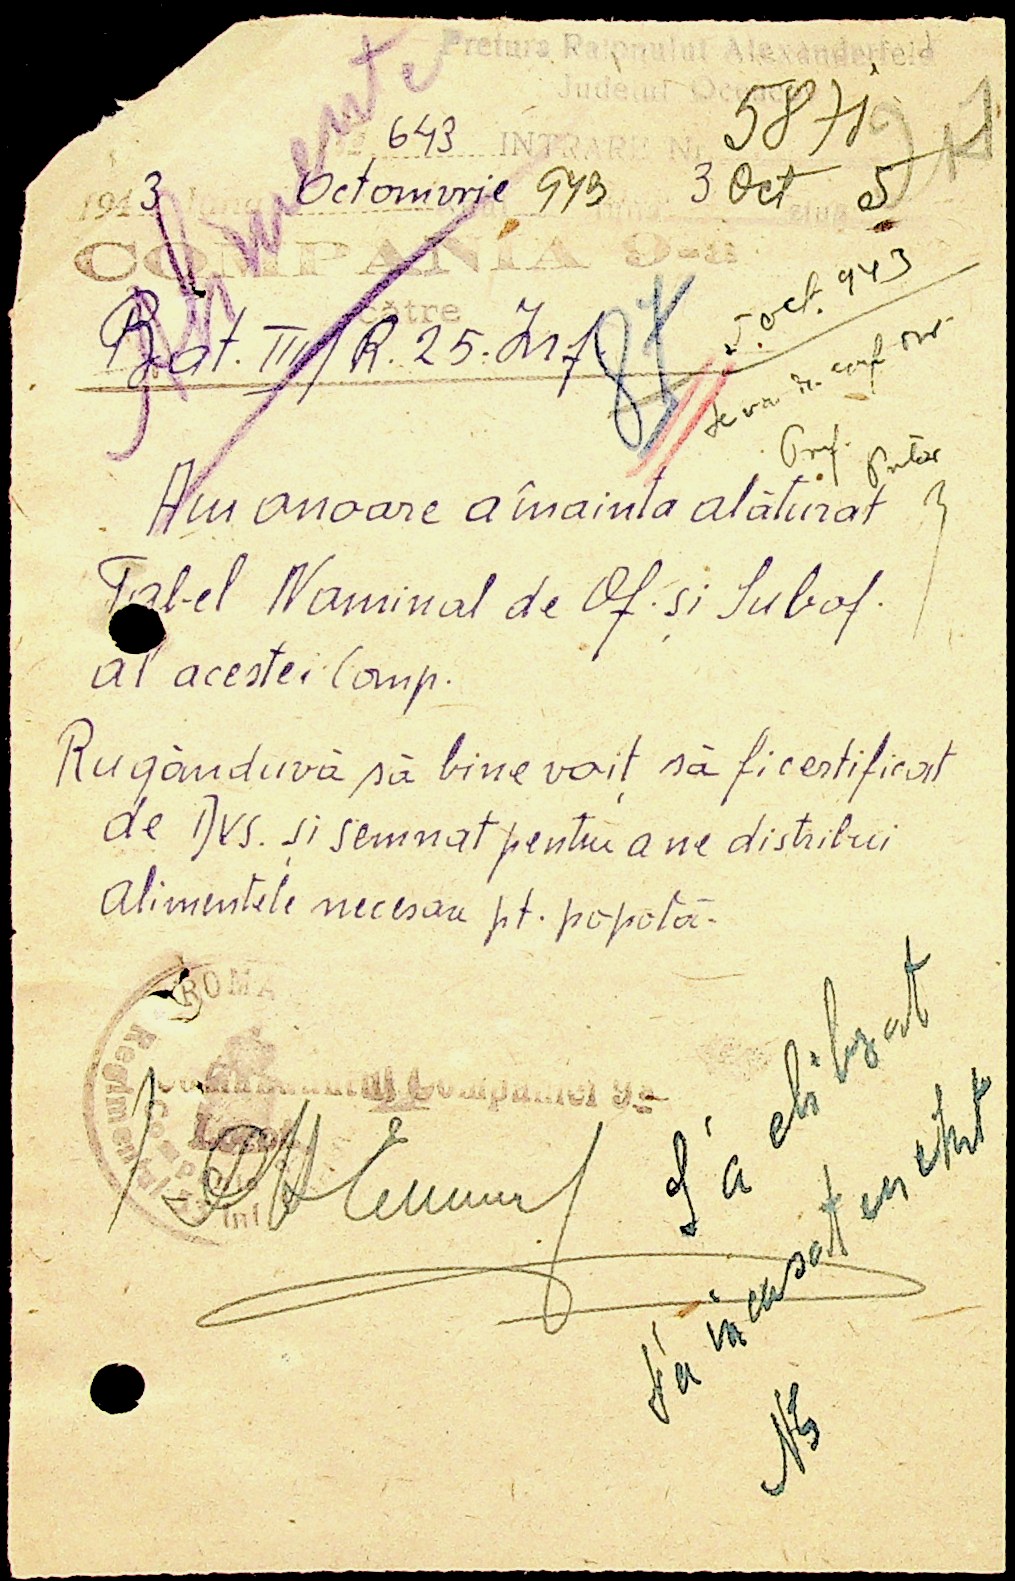 Pretura Raionului Alexanderfeld
Judeţul
643 INTRARE Nr. 5871
1943 luna Octomvrie 943 3 Oct 5
COMPANIA 9-a
către
Bat. III/R. 25. Inf.
Alimente
87
5 oct. 943
Am onoare a înainta alăturat
Tabel Naminal de Of. și Subof.
al acestei Comp.
Rugânduvă să bine voiț să fi certificat
de Dvs. și semnat pentru a ne distribui
alimentele necesare pt. popotă.
ROMA
Regimentul
Compania
Inf
Comandantul Companiei 9-a
Locot.
S'a elibzat
S'a incasat cu chit
No